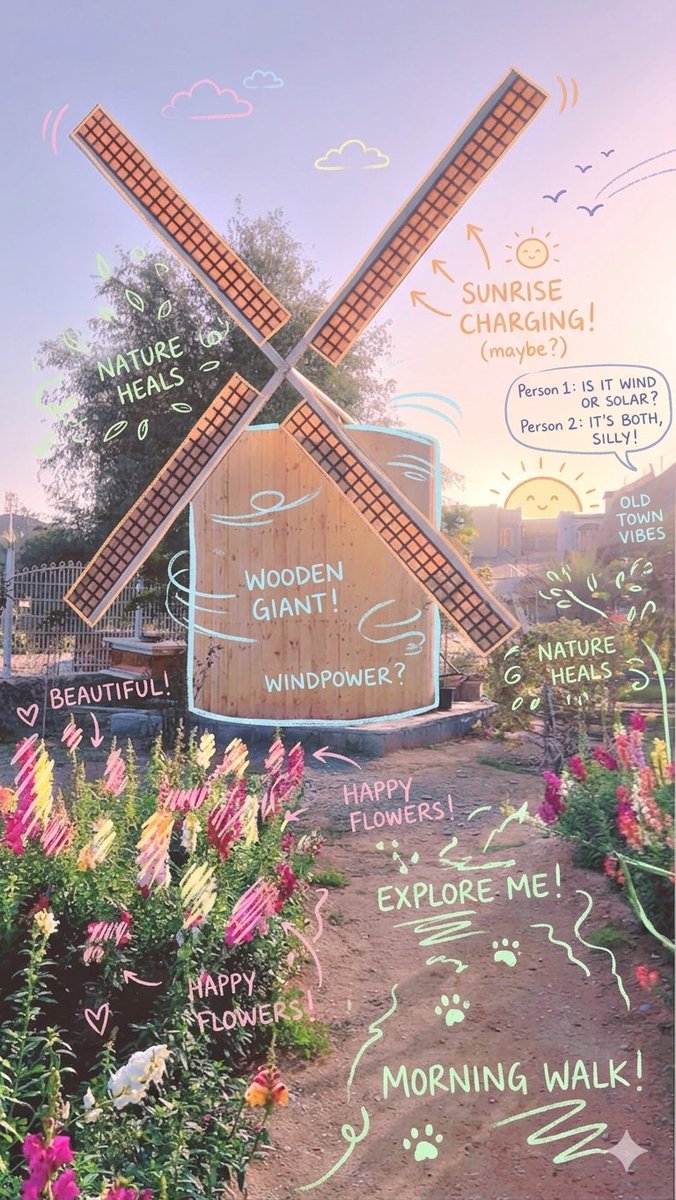 SUNRISE
CHARGING!
(maybe?)
NATURE
HEALS
Person 1: IS IT WIND
OR SOLAR?
Person 2: IT'S BOTH,
SILLY!
OLD
TOWN
VIBES
WOODEN
GIANT!
WINDPOWER?
NATURE
HEALS
BEAUTIFUL!
HAPPY
FLOWERS!
EXPLORE ME!
HAPPY
FLOWERS!
MORNING WALK!